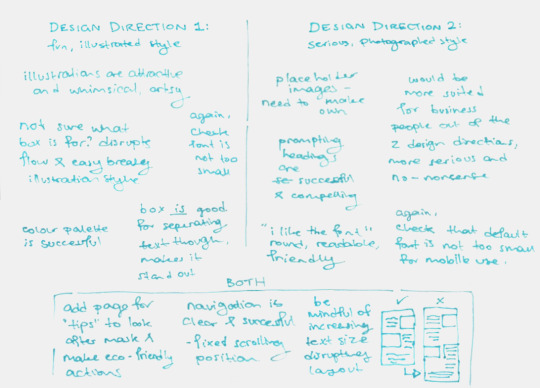 DESIGN DIRECTION 1:
fun, illustrated style
illustrations are attractive
and whimsical, artsy
not sure what
box is for? disrupts
flow & easy breezy
illustration style
again,
check
font is
not too
small
colour palette
is succesful
box is good
for seperating
text though,
makes it
stand out
DESIGN DIRECTION 2:
serious, photographed style
placeholder
images -
need to make
own
prompting
headings
are
successful
& compelling
"i like the font"
round, readable,
friendly
would be
more suited
for business
people out of the
2 design directions,
more serious and
no-nonsense
again,
check that default
font is not too small
for mobile use.
BOTH
add page for
"tips" to look
after mask &
make eco-friendly
actions
navigation is
clear & succesful
- fixed scrolling
position
be
mindful of
increasing
text size
disrupting
layout
✓ x